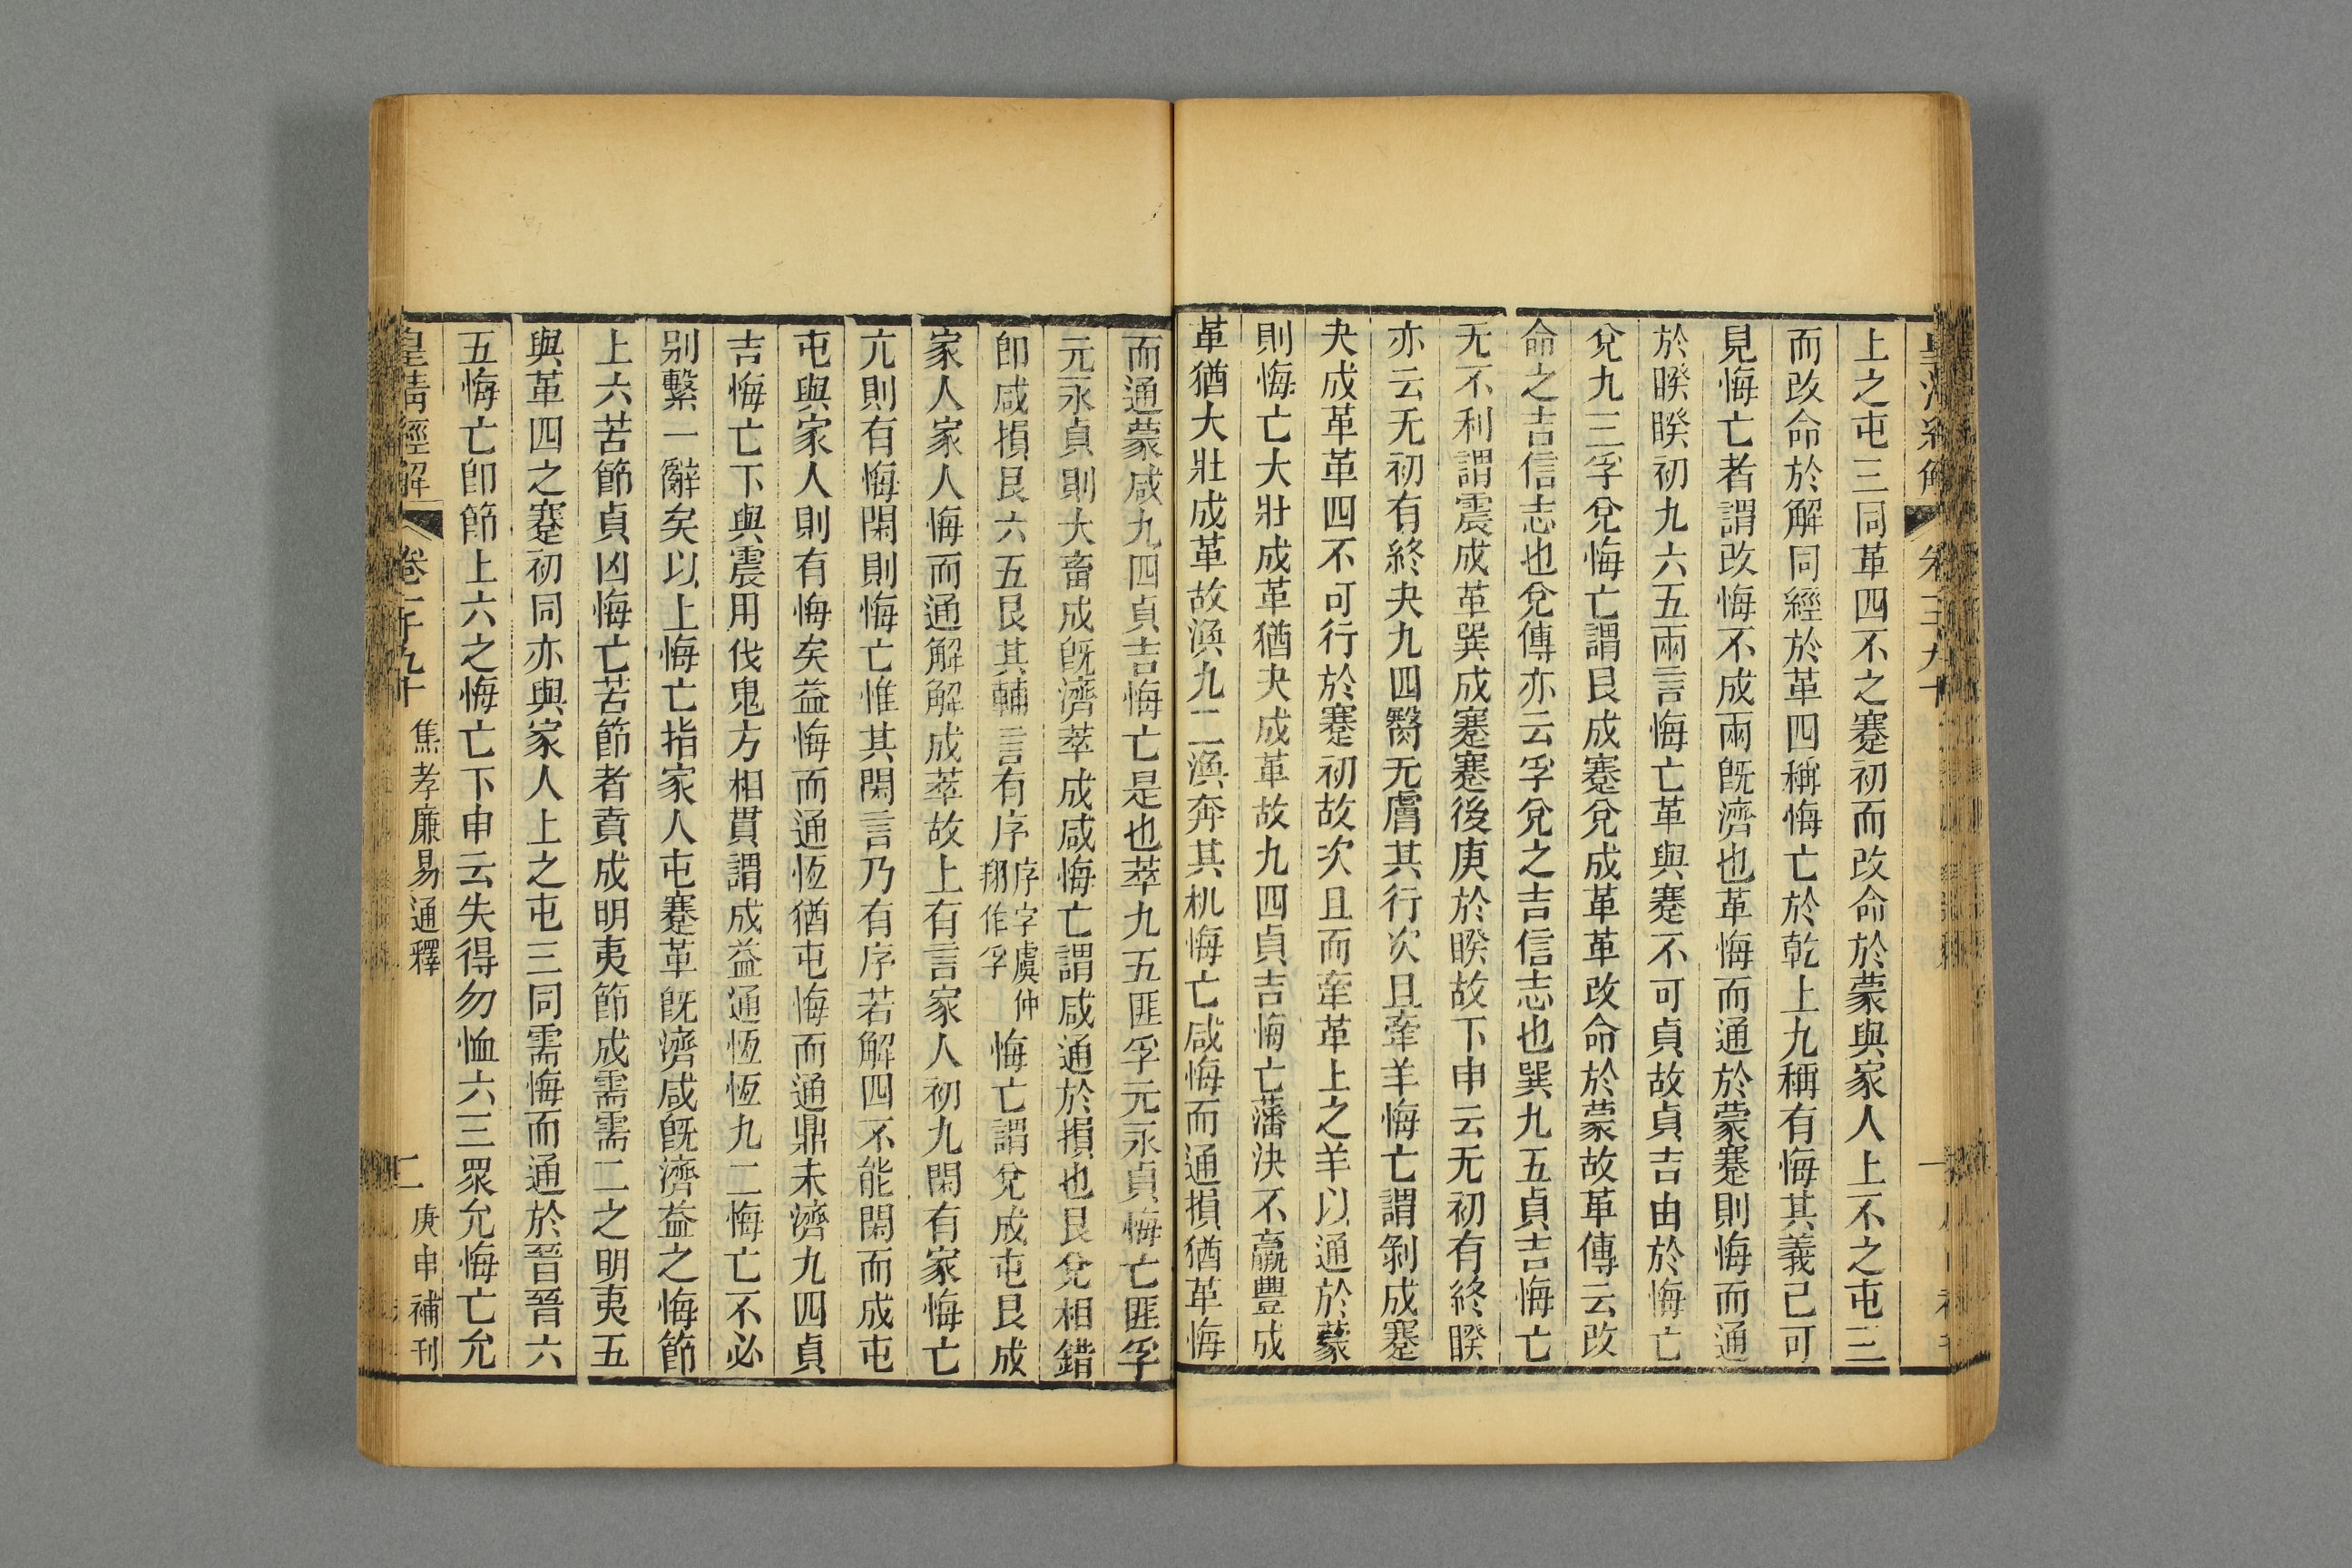 上之屯三同革四不之蹇初而改命於蒙與家人上不之屯三
而改命於解同經於革四稱悔亡於乾上九稱有悔其義己可
見悔亡者謂改悔不成兩旣濟也革悔而通於蒙蹇則悔而通
於睽睽初九六五兩言悔亡革與蹇不可貞故貞吉由於悔亡
兌九二孚兌悔亡謂艮成蹇兌成革革改命於蒙故革傳云改
命之吉信志也兌傳亦云孚兌之吉信志也巽九五貞吉悔亡
无不利謂震成革巽成蹇蹇後庚於睽故下申云无初有終睽
亦云无初有終夬九四臀无膚其行次且牽羊悔亡謂剝成蹇
夬成革革四不可行於蹇初故次且而牽革上之羊以通於蒙
則悔亡大壯成革猶夬成革故九四貞吉悔亡藩決不羸豐成
革猶大壯成革故渙九二渙奔其机悔亡咸悔而通損猶革悔
而通蒙咸九四貞吉悔亡是也萃九五匪孚元永貞悔亡匪孚
元永貞則大畜成旣濟萃成咸悔亡謂咸通於損也艮兌相錯
卽咸損艮六五艮其輔言有序序字虞仲翔作孚悔亡謂兌成屯艮成
家人家人悔而通解解成萃故上有言家人初九閑有家悔亡
亢則有悔閑則悔亡惟其閑言乃有序若解四不能閑而成屯
屯與家人則有悔矣益悔而通恆猶屯悔而通鼎未濟九四貞
吉悔亡下與震用伐鬼方相貫謂成益通恆恆九二悔亡不必
别繫一辭矣以上悔亡指家人屯蹇革旣濟咸旣濟益之悔節
上六苦節貞凶悔亡苦節者賁成明夷節成需需二之明夷五
與革四之蹇初同亦與家人上之屯三同需悔而通於晉晉六
五悔亡卽節上六之悔亡下申云失得勿恤六三眾允悔亡允
皇清經解 卷一千九十 焦孝廉易通釋 二 庚申補刊